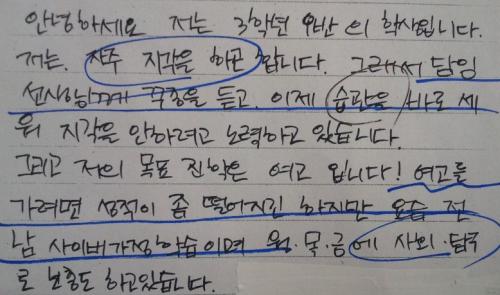 안녕하세요 저는 3학년 9반의 학생입니다.
저는 자주 지각을 하곤 합니다. 그래서 담임
선생님께 꾸중을 듣고. 이제 습관을 바로 세
워 지각을 안하려고 노력하고 있습니다.
그리고 저의 목표 진학은 여고 입니다! 여고를
가려면 성적이 좀 떨어지긴 하지만 요즘 전
남 사이버가정학습이며 월·목·금에 사회·탐구
로 보충도 하고있습니다.